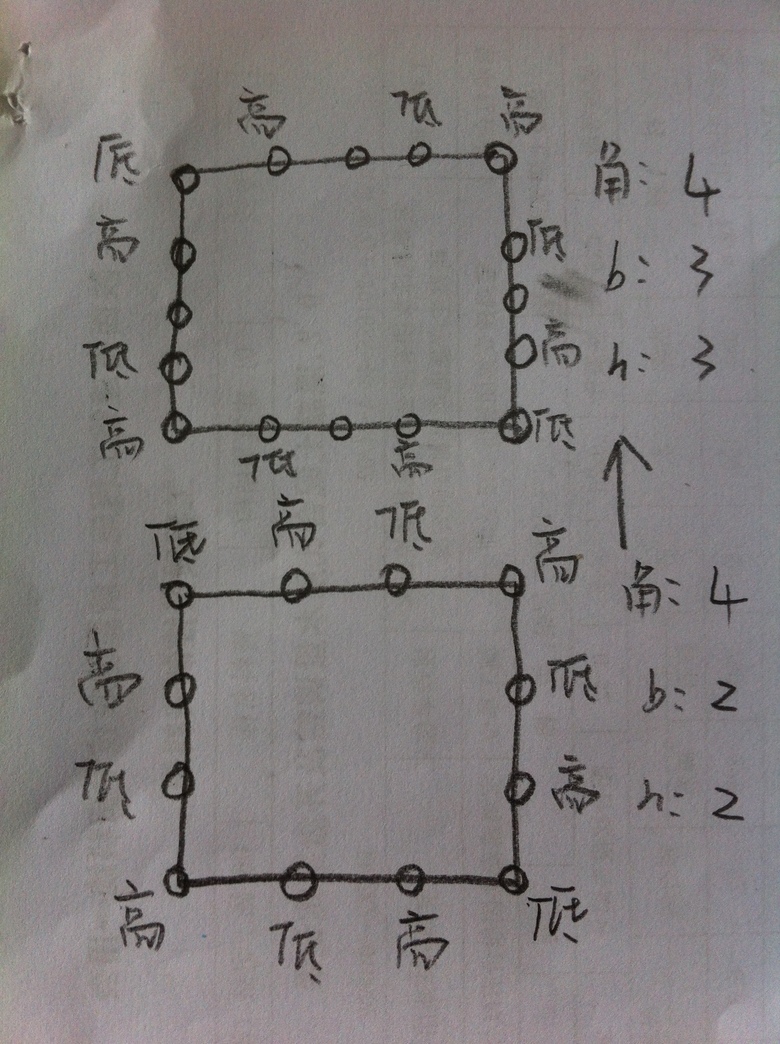 高 低 高
低 角: 4
高 低 b: 3
低 高 h: 3
高 低 高 低
低 高 低 高
角: 4
高 低 b: 2
低 高 h: 2
高 低 高 低